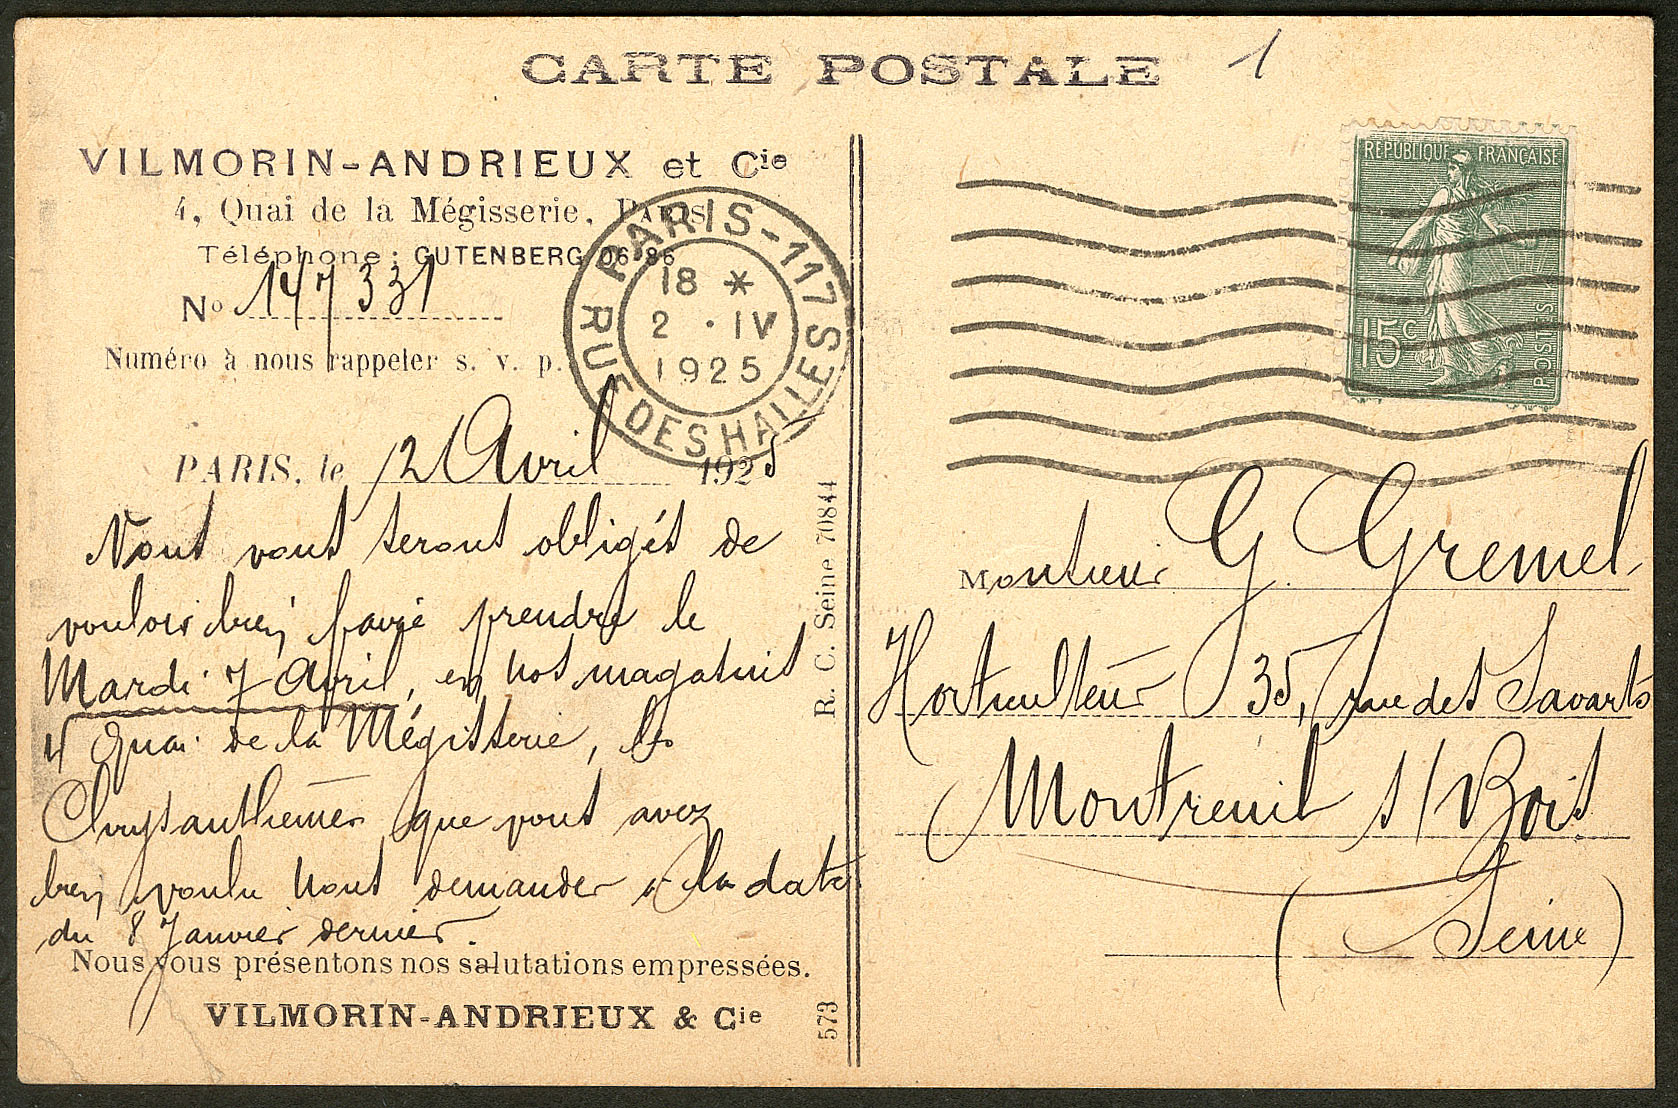 CARTE POSTALE
1
VILMORIN-ANDRIEUX et Cie
4, Quai de la Mégisserie, PARIS
Téléphone : GUTENBERG 06-86
No 147331
Numéro à nous rappeler s. v. p.
PARIS-117
RUE DES HALLES
18 *
2 · IV
1925
PARIS, le 2 Avril 1925
Nous vous serons obligés de
vouloir bien faire prendre le
Mardi 7 Avril, en nos magasins
4 Quai de la Mégisserie, les
Chrysanthèmes que vous avez
bien voulu nous demander à la date
du 8 Janvier dernier.
Nous vous présentons nos salutations empressées.
VILMORIN-ANDRIEUX & Cie
R. C. Seine 70844
573
REPUBLIQUE FRANÇAISE
15c
POSTES
Monsieur G. Gremel
Horticulteur 35, rue des Savarts
Montreuil s/Bois
(Seine)